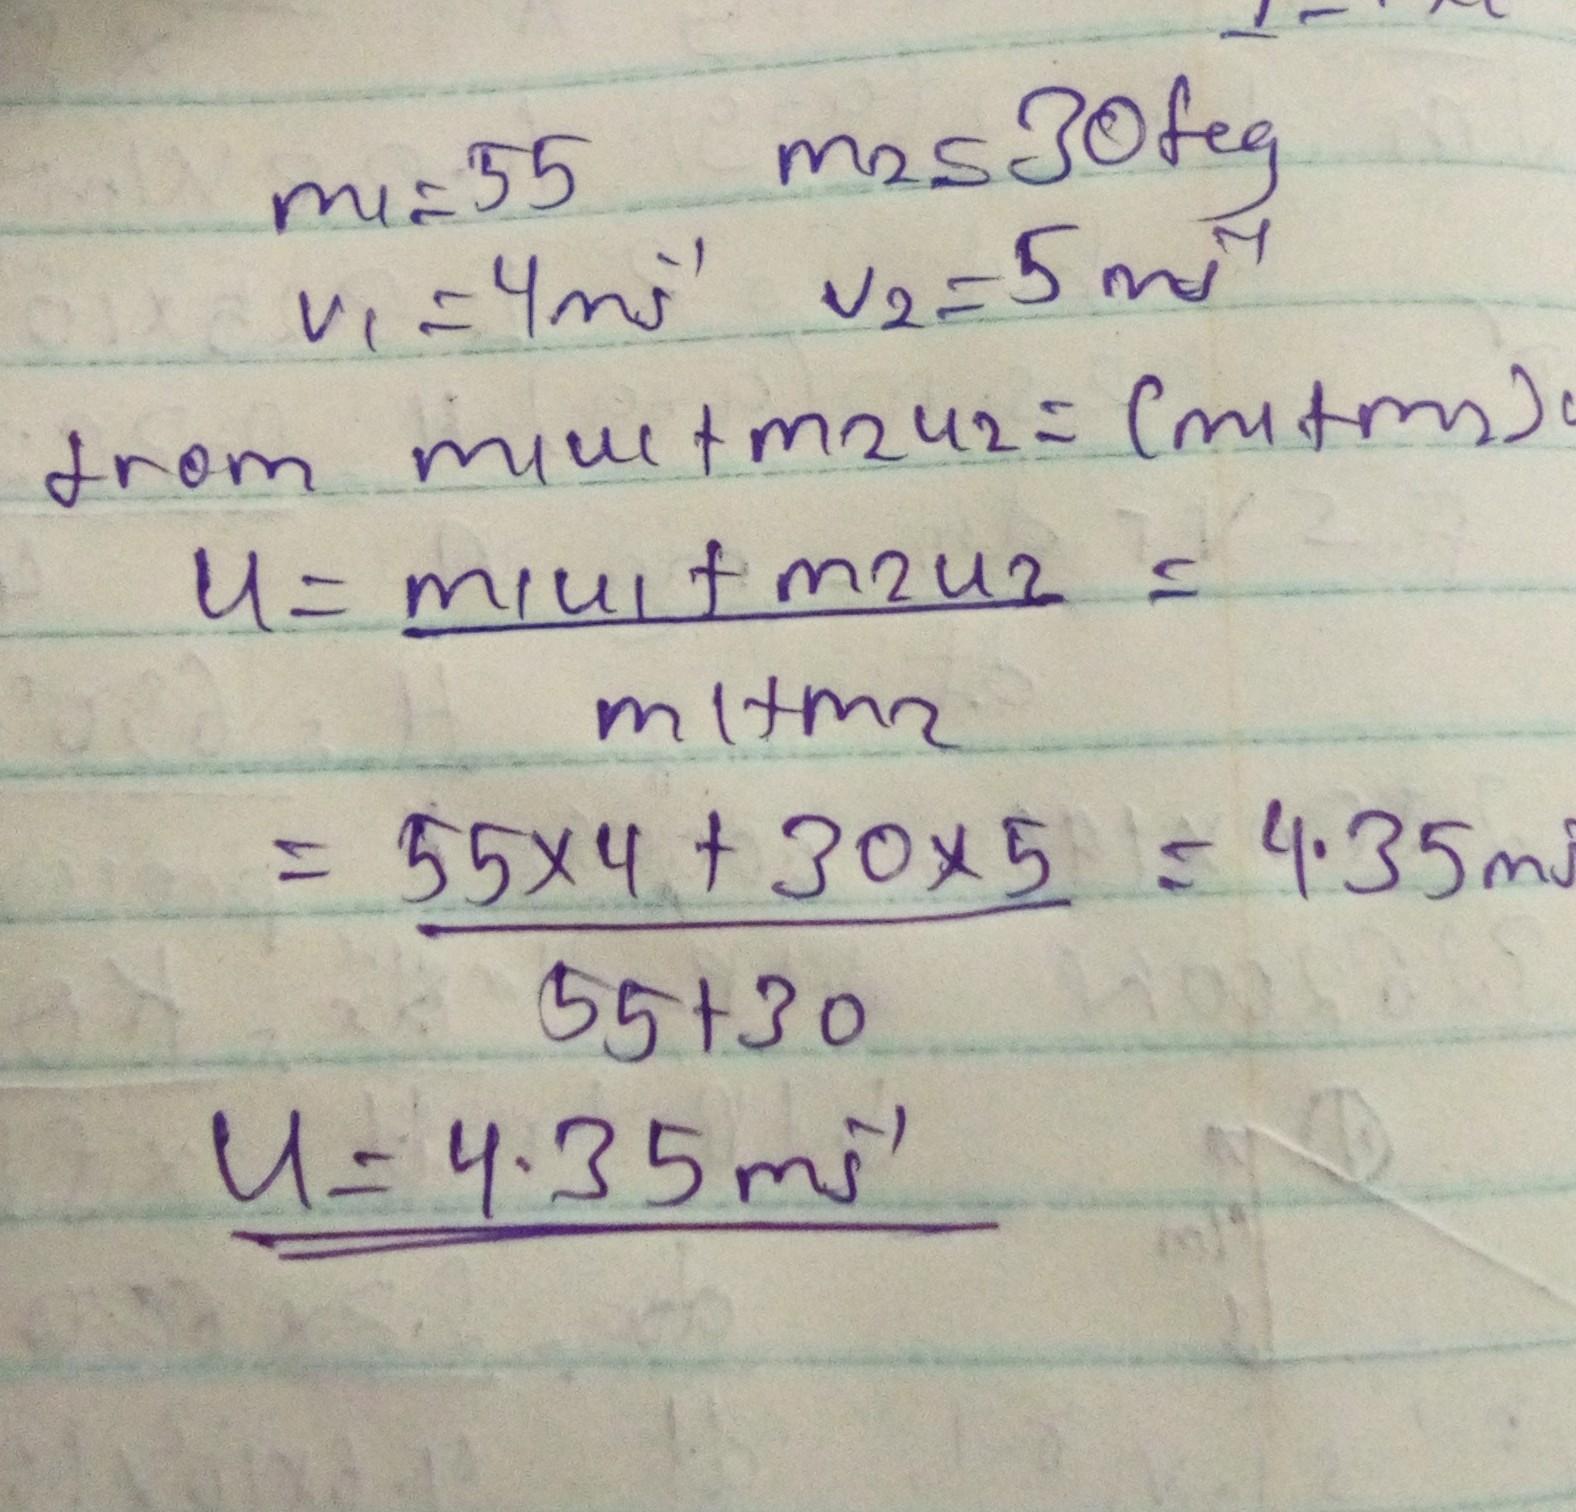 m1=55 m2=30kg
v1=4ms-1 v2=5ms-1
from m1u1+m2u2=(m1+m2)u
U=m1u1+m2u2 =
m1+m2
=55x4+30x5 = 4.35ms
55+30
U=4.35ms-1